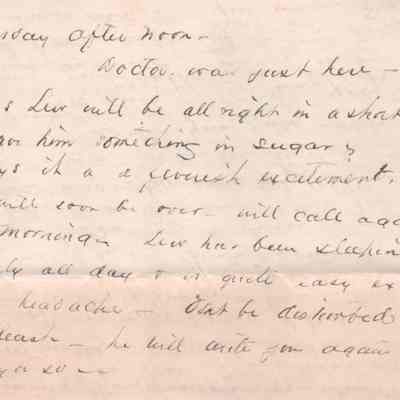 sday after noon -
Doctor was just here -
s Lew will be all right in a short
ave him something in sugar &
ys it a a feverish excitement.
will soon be over - will call aga
morning - Lew has been sleepin
ly all day & is quite easy ex
headache - Dont be disturbed
lease - he will write you again